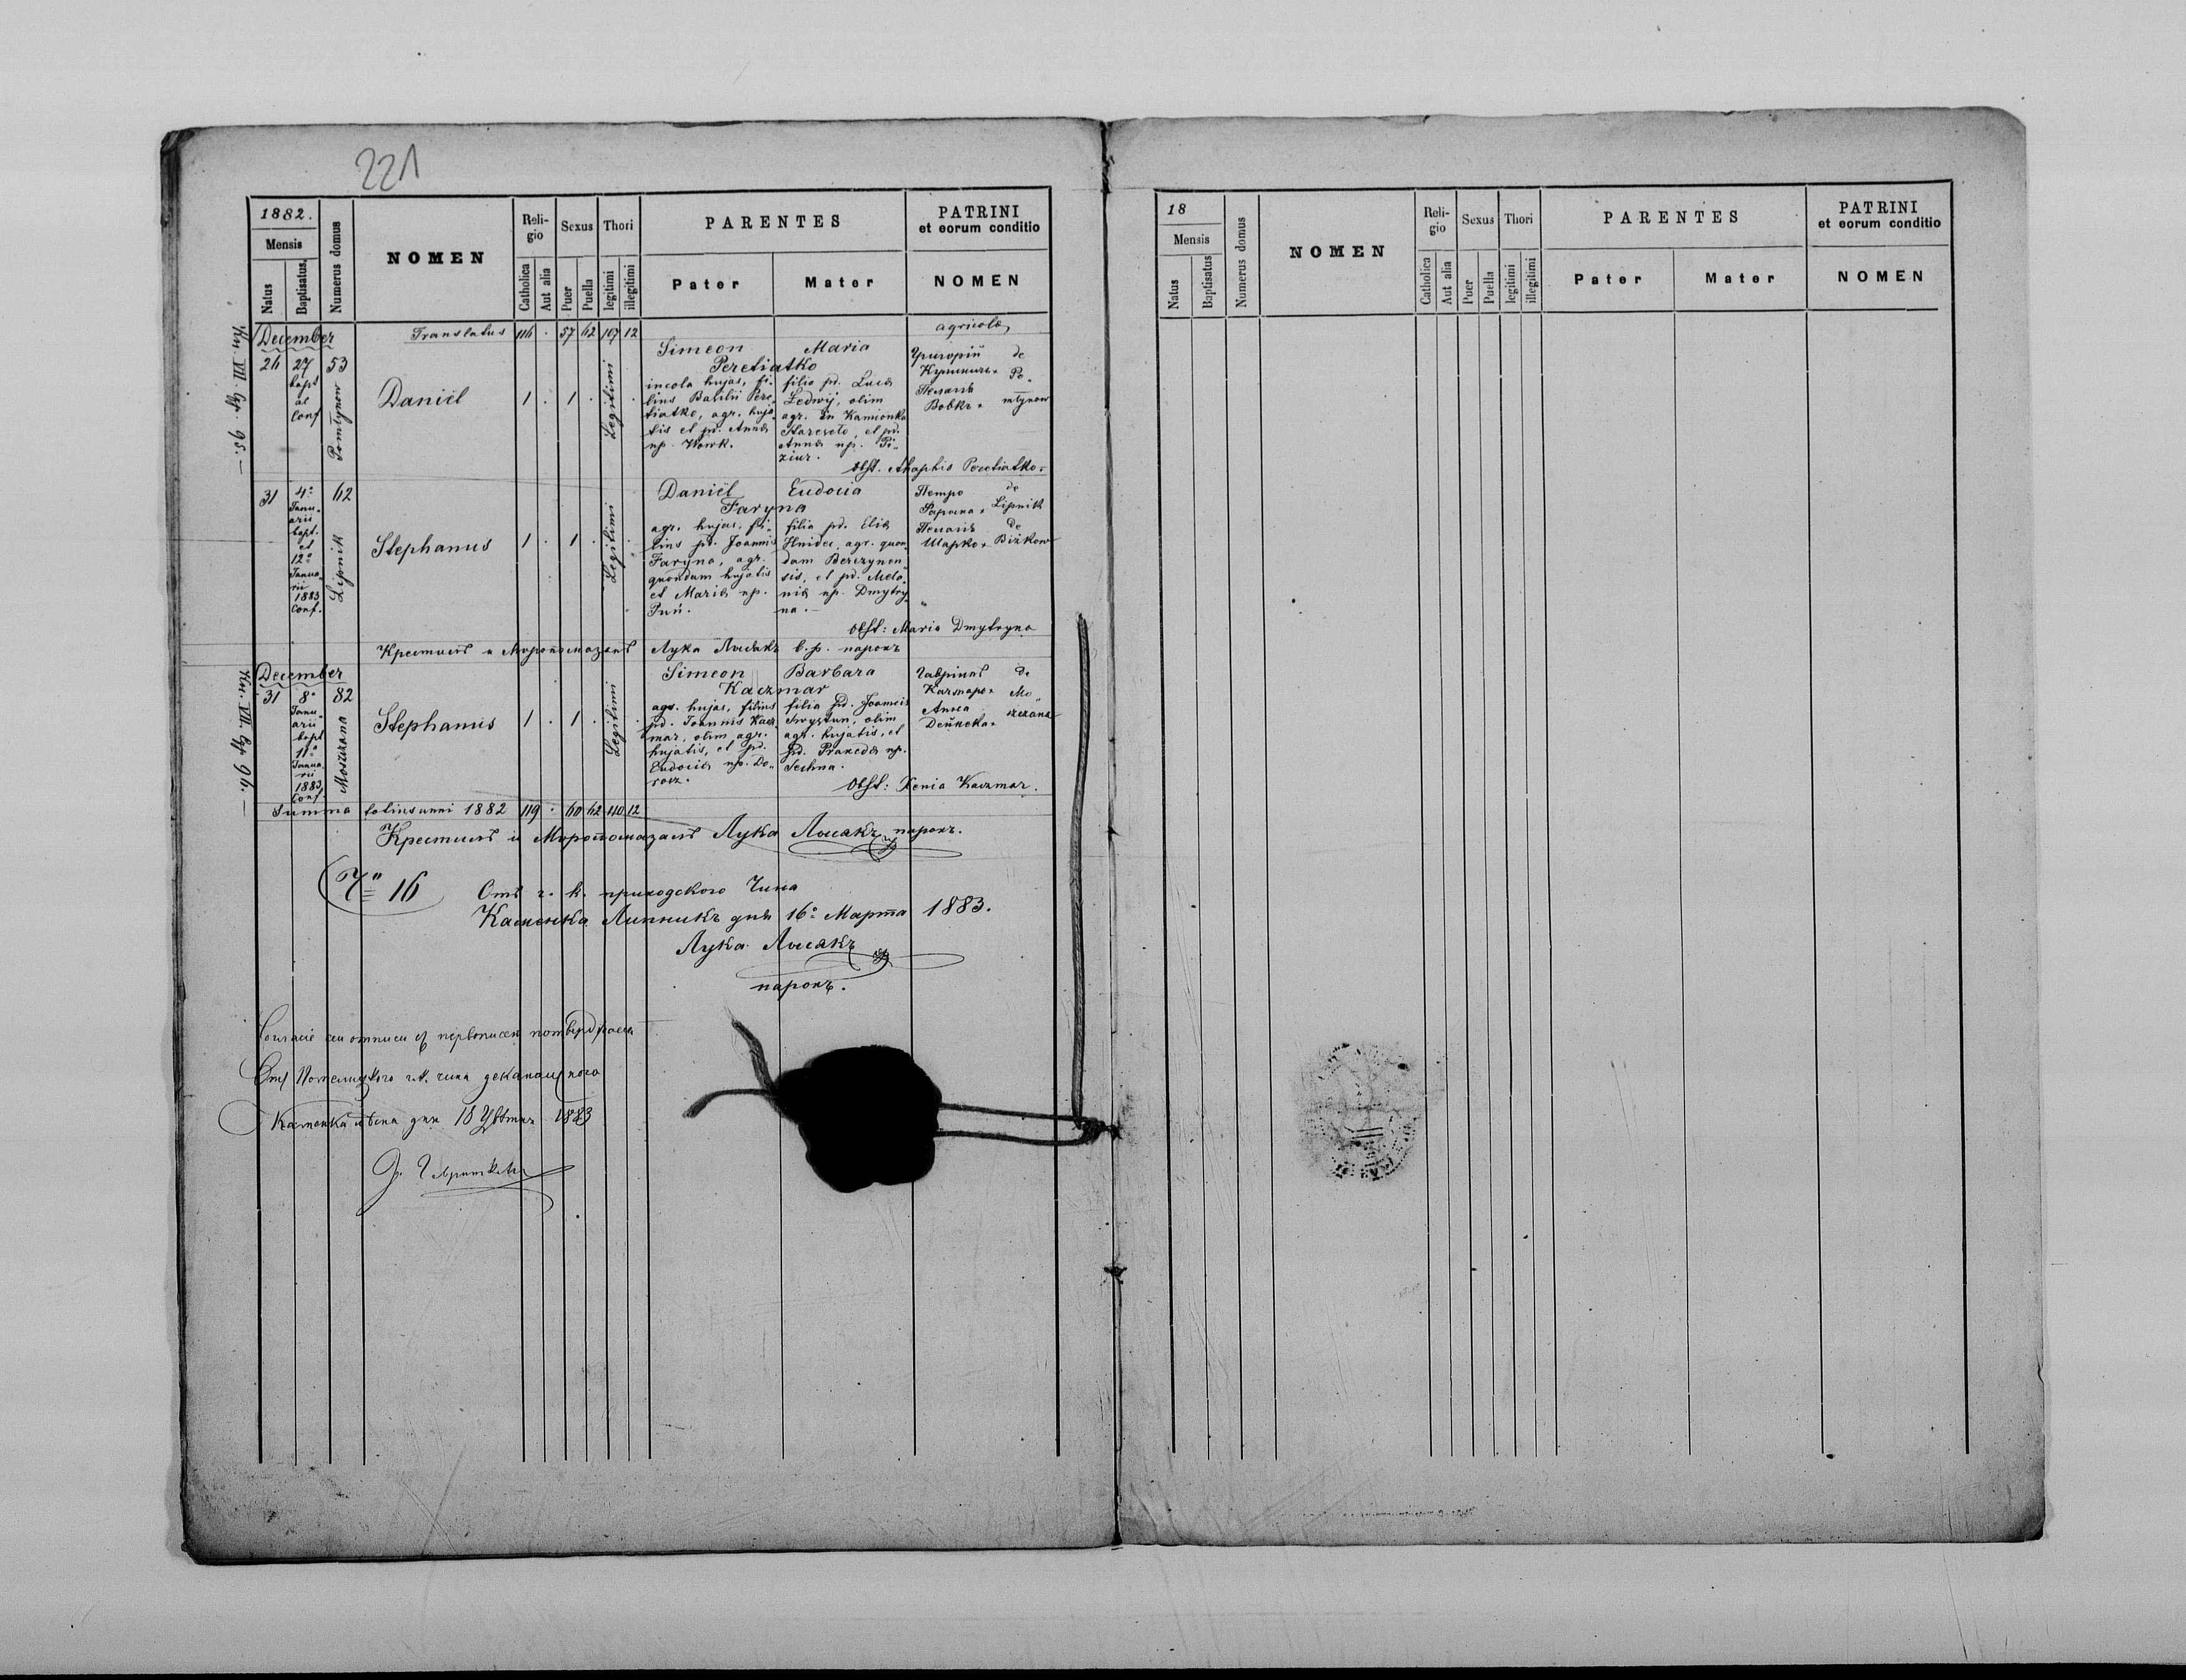 221
1882.
Mensis
Natus
Baptisatus.
Numerus domus
NOMEN
Religio
Catholica
Aut alia
Sexus
Puer
Puella
Thori
legitimi
illegitimi
PARENTES
Pater
Mater
PATRINI
et eorum conditio
NOMEN
December
Translatus 116 . 57 62 107 12
agricolae
26
27
bapt
et
Conf
53
Pomłynow
Daniël
1 . 1 . .
Legitimi
Simeon Maria
Peretiatko
incola hujas, fi-
lius Basilii Pere-
tiatko, agr. huja-
tis et pd. Annae
np. Wowk.
filia pd. Lucae
Ledwij, olim
agr. in Kamionka
Stareseło, et pd.
Annae np. Pi-
ziur.
Григорій de
Po-
młynow
Бобкъ
Obst. Ahaphia Peretiatko
31
4º
Janu-
arii
bapt.
et
12º
Janua-
rii
1883
Conf.
62
Lipnik
Stephanus
1 . 1 . .
Legitimi
Daniël Eudocia
Faryna
agr. hujas, fi-
lius pd. Joannis
Faryna, agr.
quondam hujatis
et Mariae np.
filia pd. Eliae
Hnidec, agr. quon-
dam Berezynen-
sis, et pd. Mela-
niae np. Dmytry-
na.
Петро de
Фарина Lipnik
de
Шарко Biżkow
Obst: Maria Dmytryna
Крестилъ и Мѵропомазалъ Лука Лысякъ в.р. парохъ
December
31
8º
Janu-
arii
bapt
11º
Janua-
rii
1883
Conf.
82
Moszczana
Stephanus
1 . 1 . .
Legitimi
Simeon Barbara
Kaczmar
agr. hujas, filius
pd. Joannis Kacz-
mar, olim agr.
hujatis, et pd.
Eudociae np. Do-
rosz.
filia pd. Joannis
olim
agr. hujatis, et
pd. Praxedae np.
Sechna.
Гавріилъ de
Качмаръ Mo-
Анна szczana
Дейнека
Obst: Xenia Kaczmar.
Summa totius anni 1882 119 . 60 62 110 12
Крестилъ и Мѵропомазалъ Лука Лысякъ парохъ.
Ч" 16
Отъ г. к. приходского Чина
Каменка Липникъ дня 16º Марта 1883.
Лука Лысякъ
парохъ.
Каменка лѣсна дня 18 Цвѣтня 1883
18
Mensis
Natus
Baptisatus
Numerus domus
NOMEN
Religio
Catholica
Aut alia
Sexus
Puer
Puella
Thori
legitimi
illegitimi
PARENTES
Pater
Mater
PATRINI
et eorum conditio
NOMEN